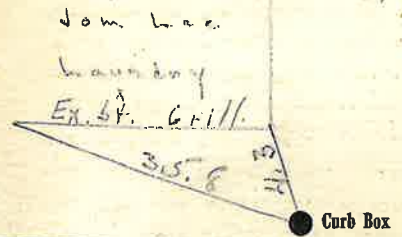 Tom Lee
Laundry
Ex. St. Grill.
35.8
11.3
Curb Box